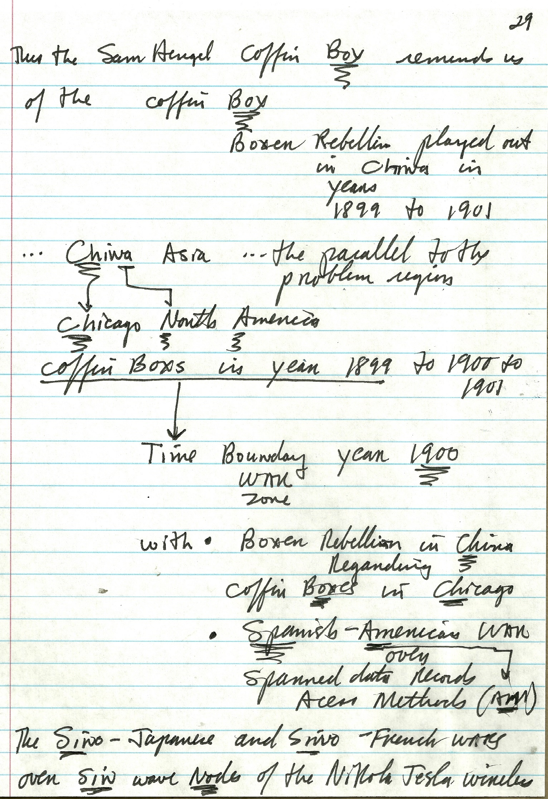 29
Thus the Sam Hengel coffin Box reminds us
of the coffin Box
Boxer Rebellion played out
in China in
years
1899 to 1901
... China Asia ... the parallel to the
problem region
Chicago North America
coffin Boxs in year 1899 to 1900 to
1901
Time Boundary year 1900
WAR
zone
with • Boxer Rebellion in China
Regarding
coffin Boxes in Chicago
• Spanish-American WAR
over
Spanned data Records
Acess Methods (AM)
The Sino-Japanese and Sino-French wars
over Sin wave Nodes of the Nikola Tesla wireless